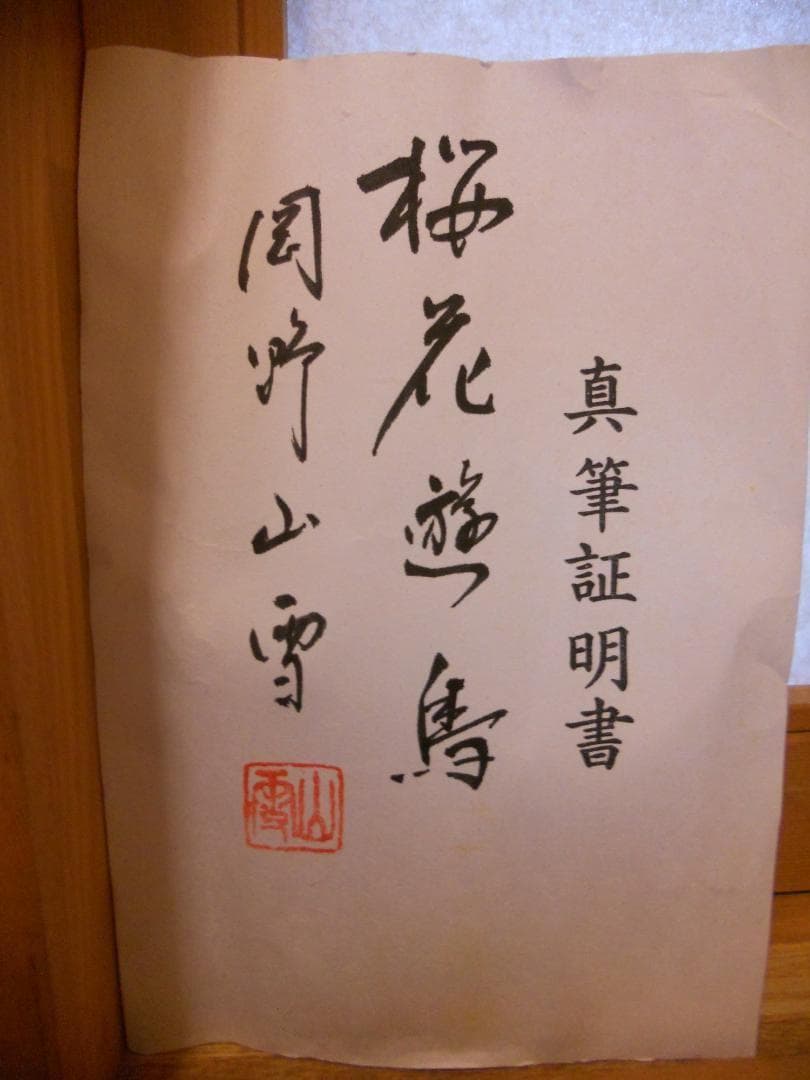 真筆証明書
桜花遊鳥
岡野山雪
山雪